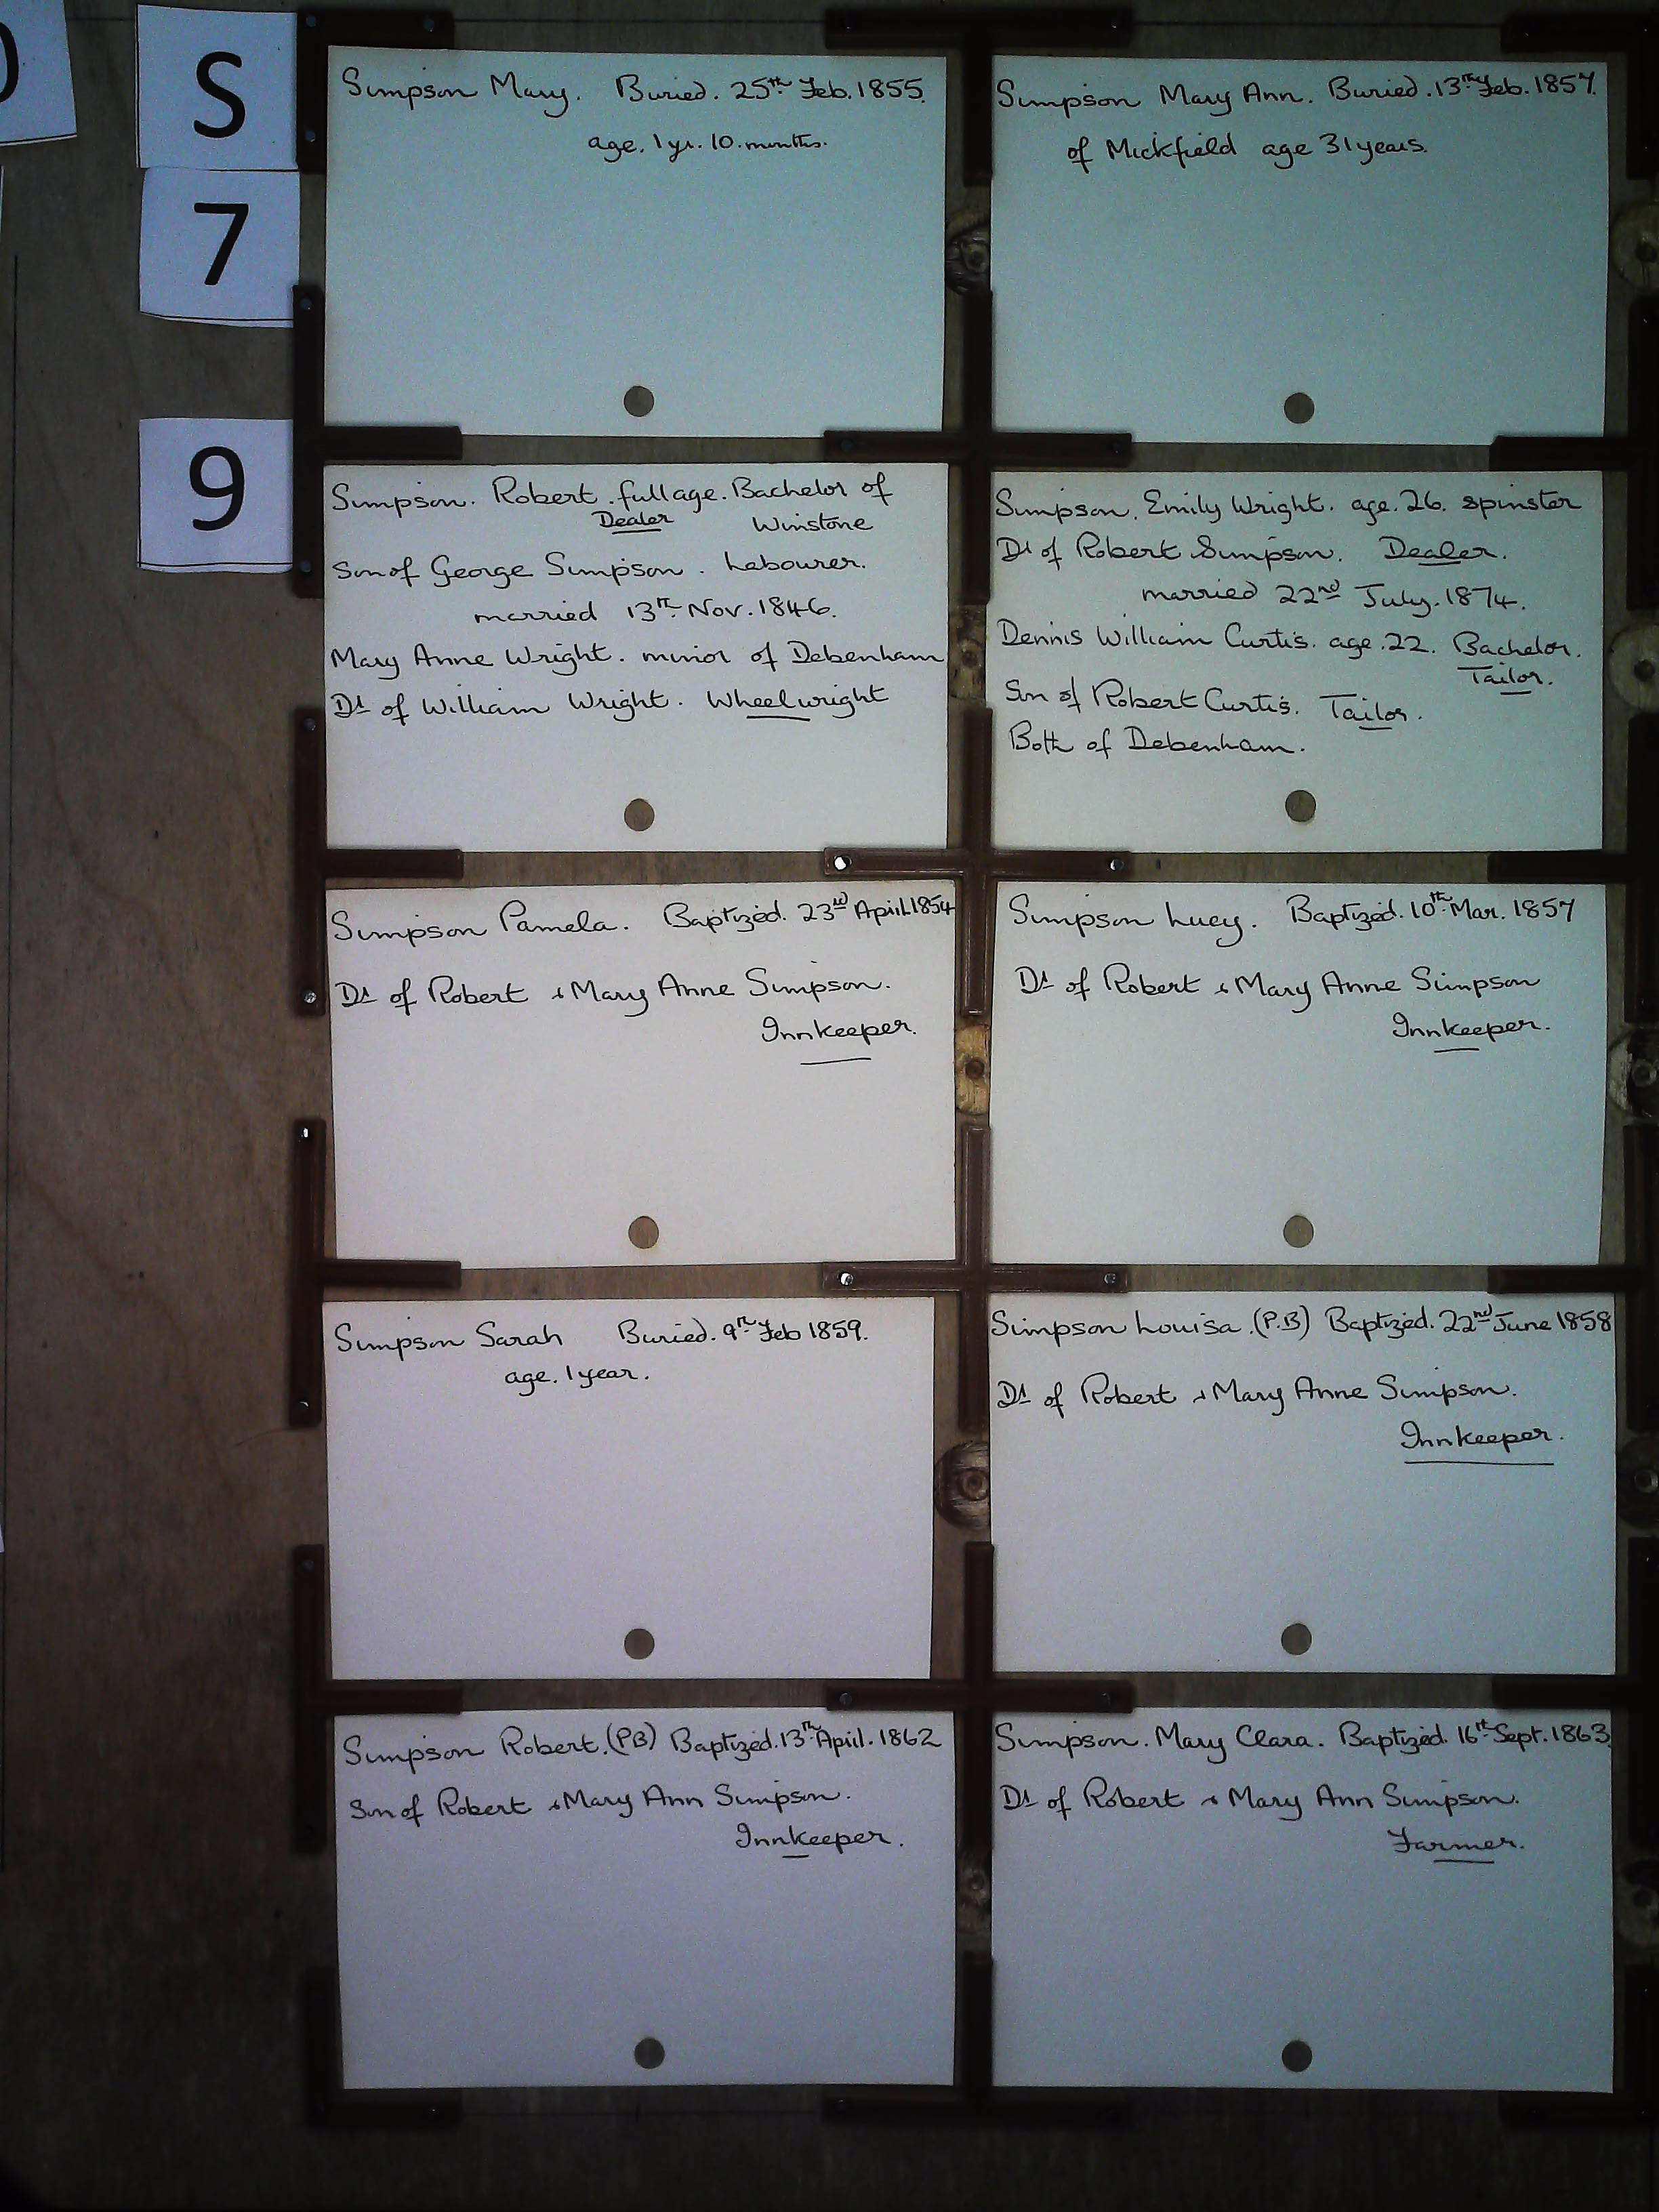 S
7
9
Simpson Mary. Buried. 25th Feb. 1855.
age. 1 yr. 10. months.
Simpson Mary Ann. Buried. 13th Feb. 1857.
of Mickfield age 31 years.
Simpson. Robert. full age. Bachelor of
Dealer Winstone
Son of George Simpson. Labourer.
married 13th Nov. 1846.
Mary Anne Wright. minor of Debenham
Dr of William Wright. Wheelwright
Simpson. Emily Wright. age. 26. spinster
Dr of Robert Simpson. Dealer.
married 22nd July. 1874.
Dennis William Curtis. age. 22. Bachelor.
Tailor.
Son of Robert Curtis. Tailor.
Both of Debenham.
Simpson Pamela. Baptized. 23rd April. 1854
Dr of Robert & Mary Anne Simpson.
Innkeeper.
Simpson Lucy. Baptized. 10th Mar. 1857
Dr of Robert & Mary Anne Simpson
Innkeeper.
Simpson Sarah Buried. 9th Feb 1859.
age. 1 year.
Simpson Louisa. (P.B) Baptized. 22nd June 1858
Dr of Robert & Mary Anne Simpson.
Innkeeper.
Simpson Robert. (PB) Baptized. 13th April. 1862
Son of Robert & Mary Ann Simpson.
Innkeeper.
Simpson. Mary Clara. Baptized. 16th Sept. 1863.
Dr of Robert & Mary Ann Simpson.
Farmer.